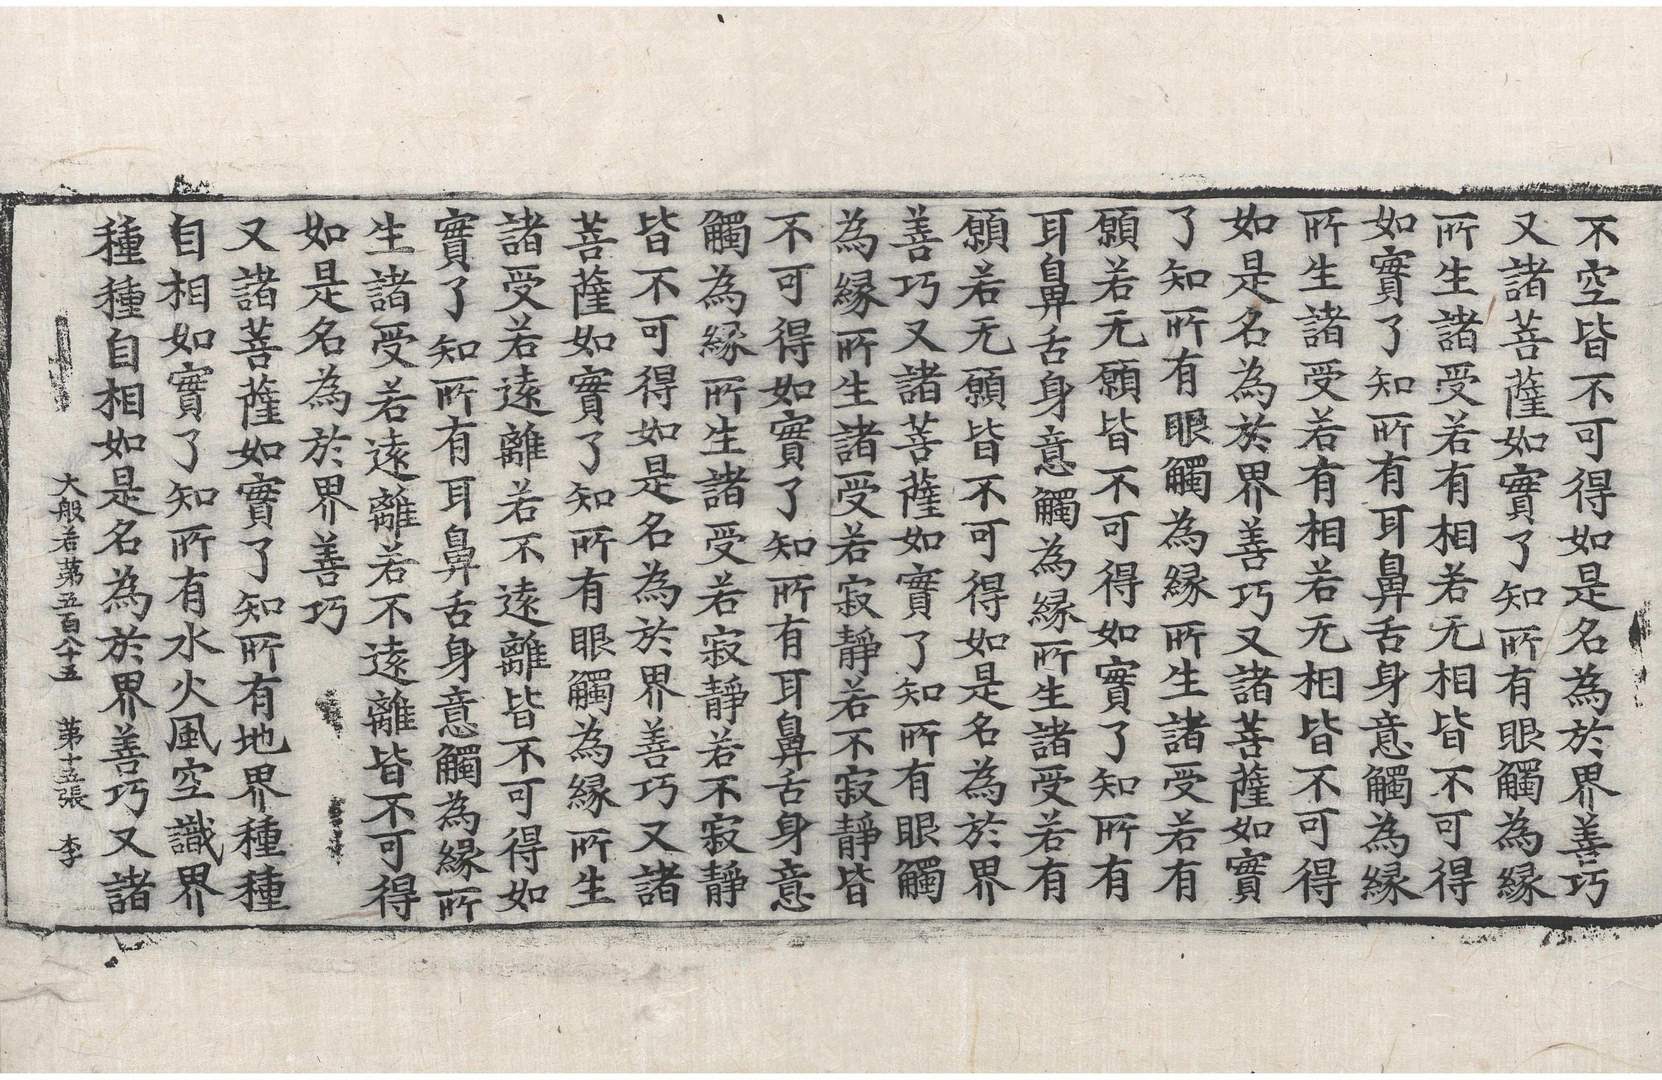 不空皆不可得如是名為於界善巧
又諸菩薩如實了知所有眼觸為緣
所生諸受若有相若无相皆不可得
如實了知所有耳鼻舌身意觸為緣
所生諸受若有相若无相皆不可得
如是名為於界善巧又諸菩薩如實
了知所有眼觸為緣所生諸受若有
願若无願皆不可得如實了知所有
耳鼻舌身意觸為緣所生諸受若有
願若无願皆不可得如是名為於界
善巧又諸菩薩如實了知所有眼觸
為緣所生諸受若寂靜若不寂靜皆
不可得如實了知所有耳鼻舌身意
觸為緣所生諸受若寂靜若不寂靜
皆不可得如是名為於界善巧又諸
菩薩如實了知所有眼觸為緣所生
諸受若遠離若不遠離皆不可得如
實了知所有耳鼻舌身意觸為緣所
生諸受若遠離若不遠離皆不可得
如是名為於界善巧
又諸菩薩如實了知所有地界種種
自相如實了知所有水火風空識界
種種自相如是名為於界善巧又諸
大般若第五百八十五 第十五張 李